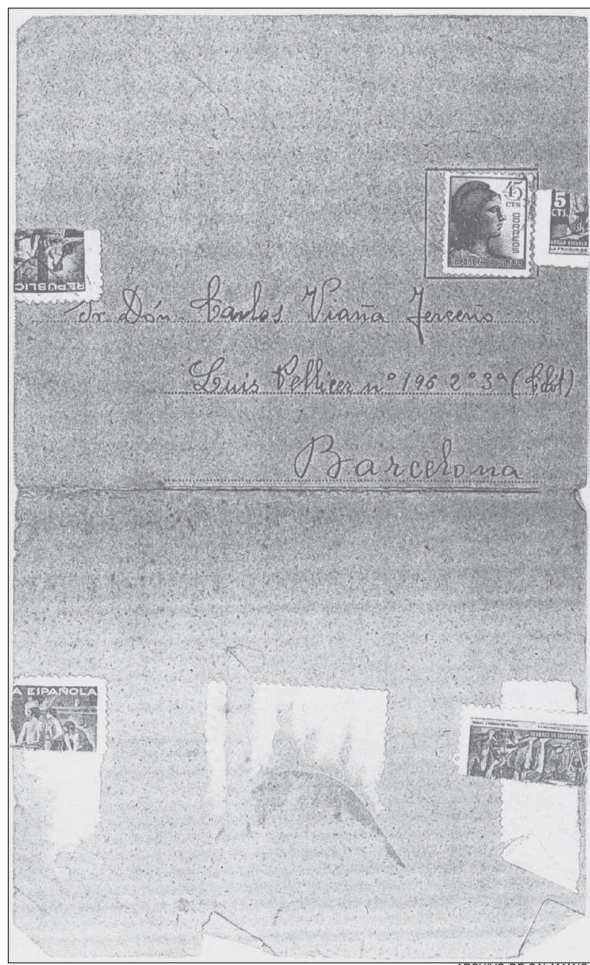 45
CTS
CORREOS
5
CTS.
REPUBLIC
Sr Dón Carlos Viaña Jerceño
Luis Pellicer nº 195 2º 3ª (Clot)
Barcelona
A ESPAÑOLA